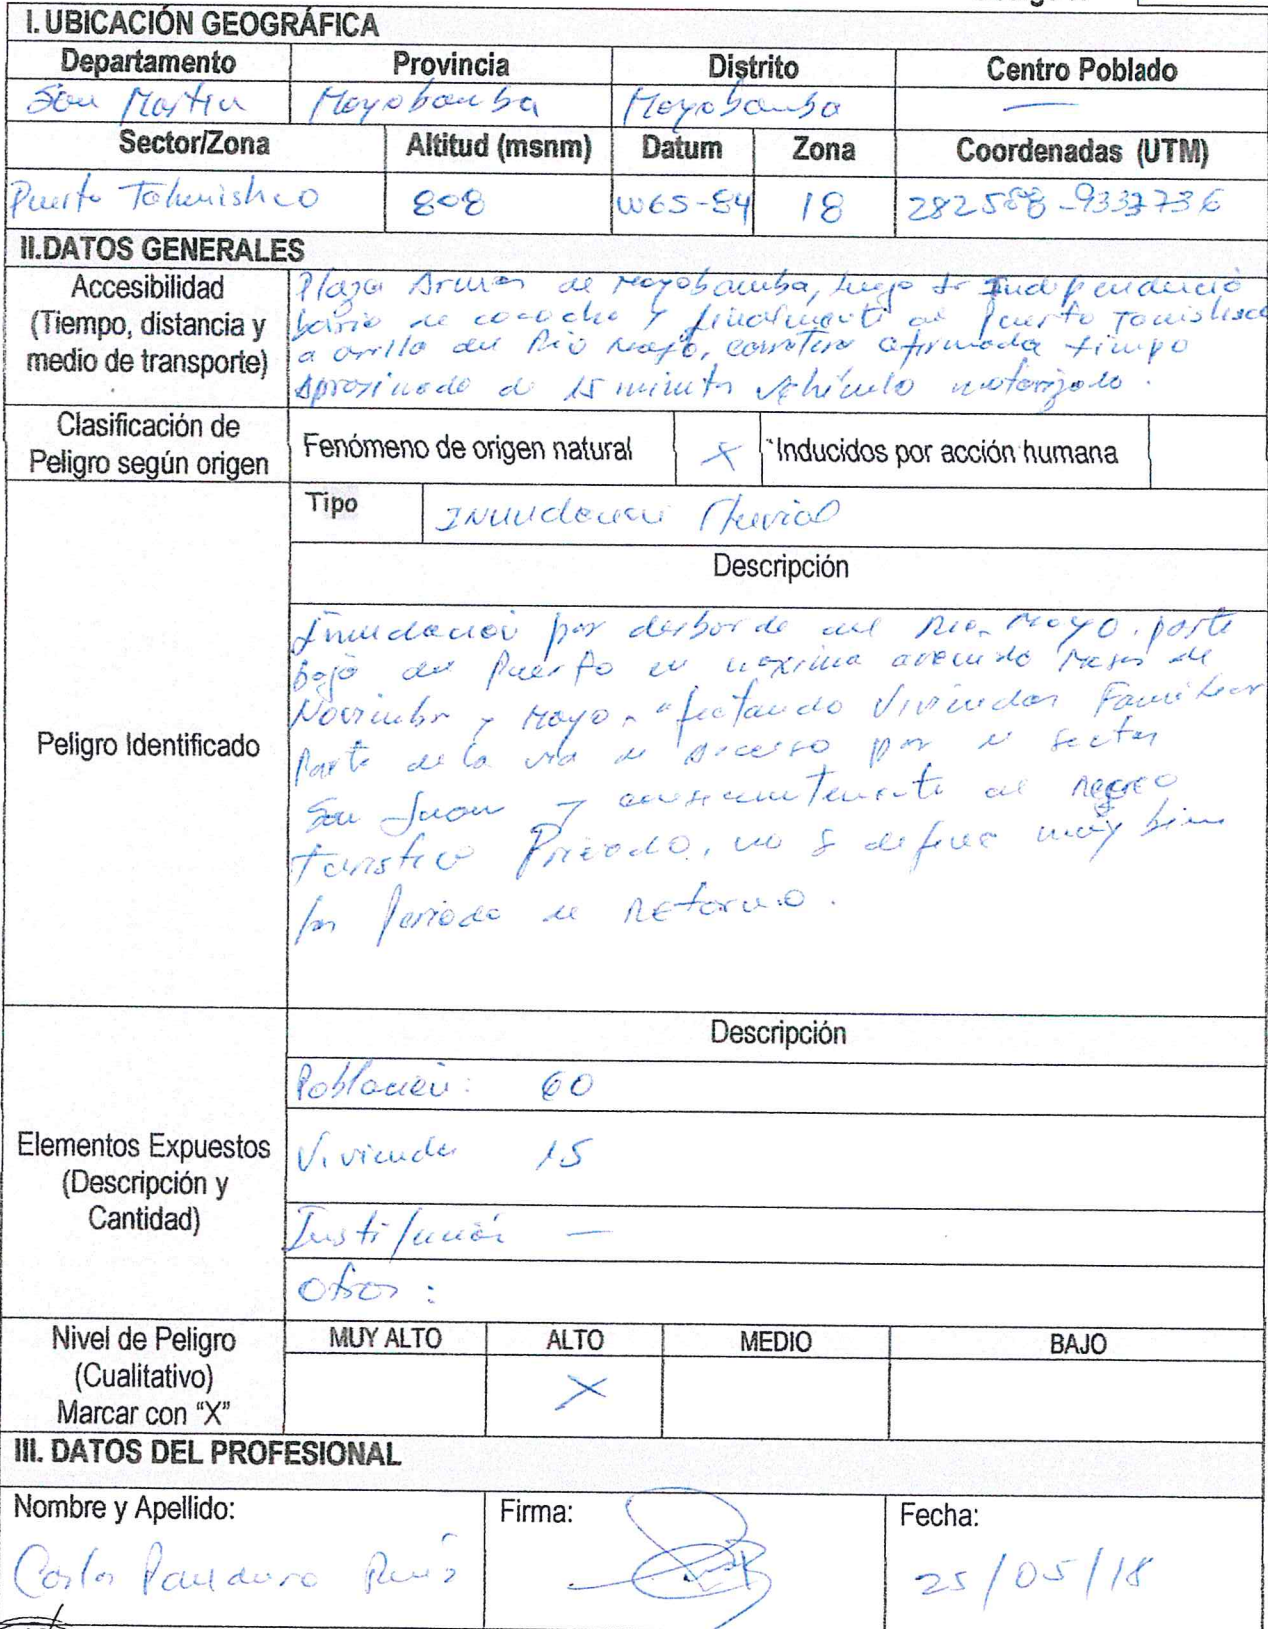 I. UBICACIÓN GEOGRÁFICA
Departamento Provincia Distrito Centro Poblado
San Martin Moyobamba Moyobamba —
Sector/Zona Altitud (msnm) Datum Zona Coordenadas (UTM)
Puerto 808 WGS-84 18 282588-9333736
II.DATOS GENERALES
Accesibilidad
(Tiempo, distancia y
medio de transporte)
Plaza Armas de Moyobamba, luego Jr Independencia
barrio de y finalmente al Puerto
a orilla del Rio Mayo, carretera afirmada tiempo
aproximado de 15 minutos vehículo motorizado.
Clasificación de
Peligro según origen
Fenómeno de origen natural X Inducidos por acción humana
Peligro Identificado
Tipo Inundacion Fluvial
Descripción
Inundación por desborde del Rio Mayo, parte
baja del Puerto en maxima avenida Meses de
Noviembre y Mayo, afectando Viviendas Familiar
Parte de la via de acceso por el sector
San Juan y al
Turistico Privado, no se define muy bien
los Periodo de Retorno.
Elementos Expuestos
(Descripción y
Cantidad)
Descripción
Población: 60
Vivienda 15
Institución —
Otros :
Nivel de Peligro
(Cualitativo)
Marcar con “X”
MUY ALTO ALTO MEDIO BAJO
X
III. DATOS DEL PROFESIONAL
Nombre y Apellido: Firma: Fecha:
Carlos Panduro 25/05/18